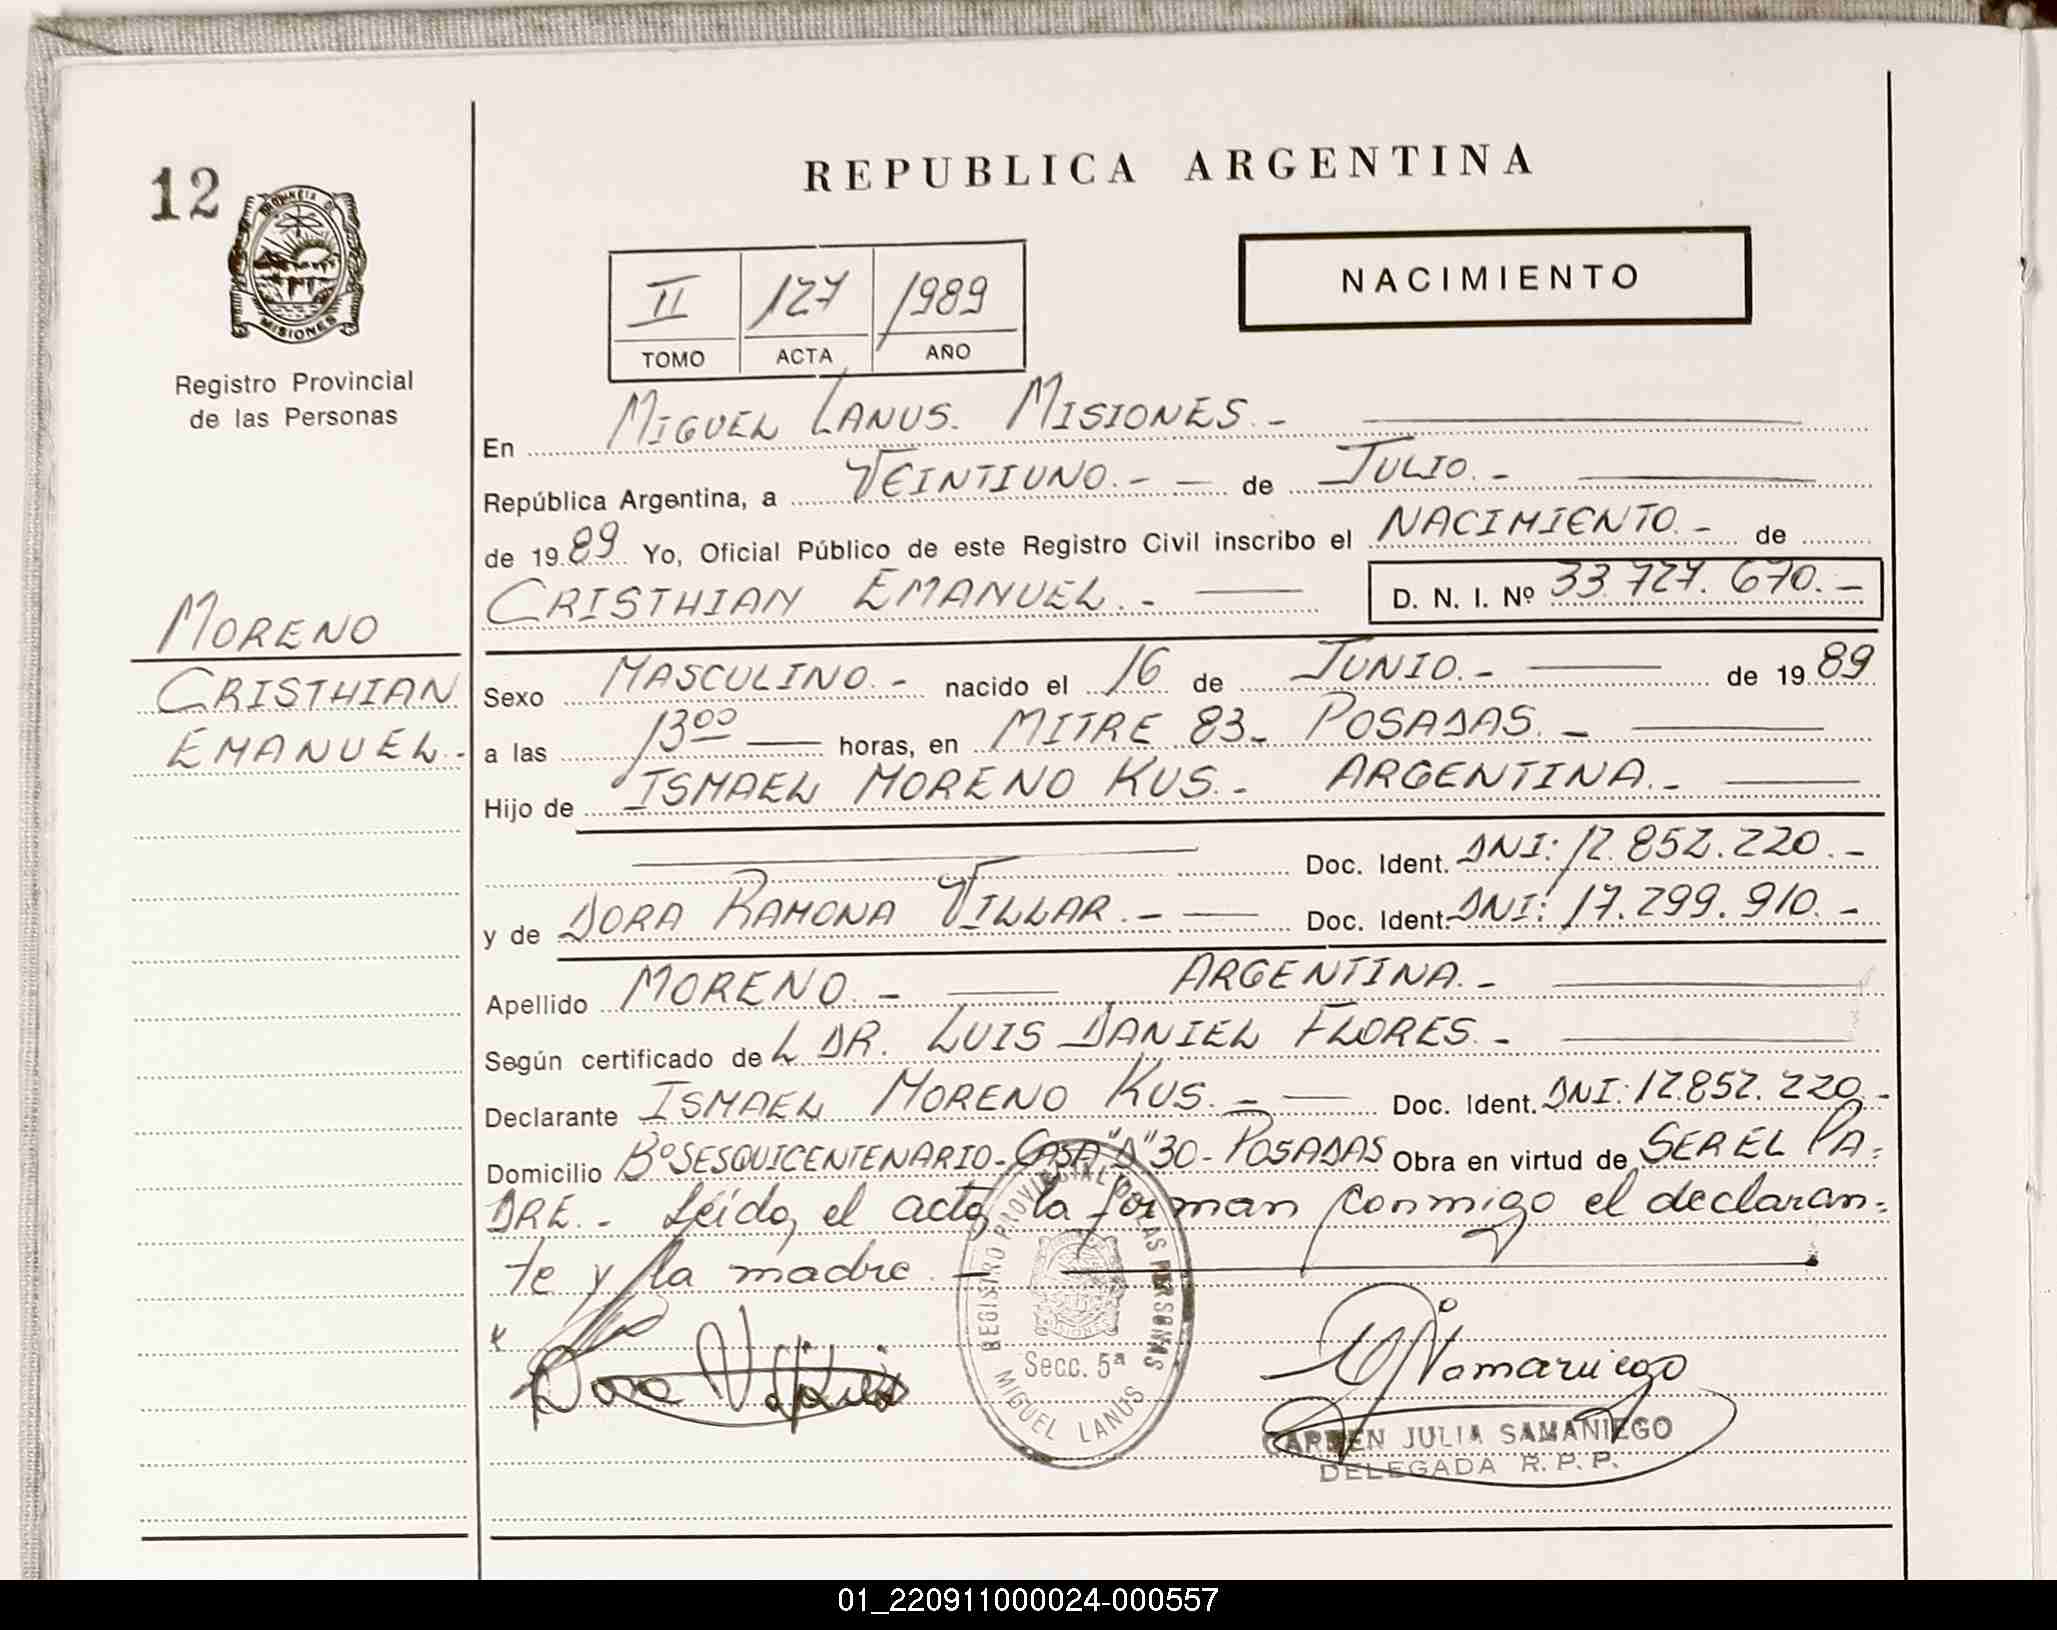 REPUBLICA ARGENTINA
12
PROVINCIA DE
MISIONES
Registro Provincial
de las Personas
NACIMIENTO
II 127 1989
TOMO ACTA AÑO
En MIGUEL LANUS. MISIONES.-
República Argentina, a VEINTIUNO.- - de JULIO.-
de 1989 Yo, Oficial Público de este Registro Civil inscribo el NACIMIENTO.- de
CRISTHIAN EMANUEL.- D. N. I. Nº 33.727.670.-
MORENO
CRISTHIAN
EMANUEL.-
Sexo MASCULINO.- nacido el 16 de JUNIO.- de 1989
a las 13 00 horas, en MITRE 83- POSADAS.-
Hijo de ISMAEL MORENO KUS.- ARGENTINA.-
Doc. Ident. DNI: 12.852.220.-
y de DORA RAMONA VILLAR.- Doc. Ident. DNI: 17.299.910.-
Apellido MORENO.- ARGENTINA.-
Según certificado de L DR. LUIS DANIEL FLORES.-
Declarante ISMAEL MORENO KUS.- Doc. Ident. DNI: 12.852.220.-
Domicilio Bº SESQUICENTENARIO- CASA "D" 30- POSADAS Obra en virtud de SER EL PA=
DRE.- Leído, el acta, la firman conmigo el declaran=
te y la madre.-
REGISTRO PROVINCIAL DE LAS PERSONAS
Secc. 5ª
MIGUEL LANUS
Dora
Samaniego
CARMEN JULIA SAMANIEGO
DELEGADA R. P. P.
01_220911000024-000557